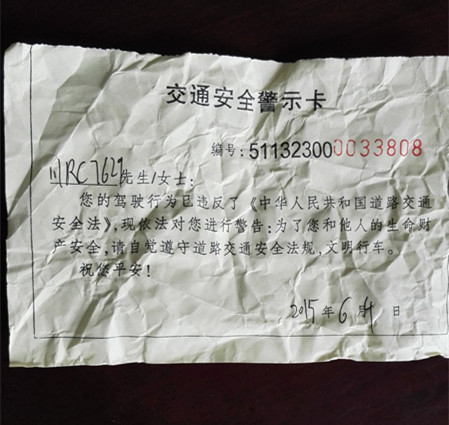 交通安全警示卡
编号:511323000033808
川RC7629先生/女士:
您的驾驶行为已违反了《中华人民共和国道路交通
安全法》,现依法对您进行警告:为了您和他人的生命财
产安全,请自觉遵守道路交通安全法规,文明行车。
祝您平安!
2015年6月 日